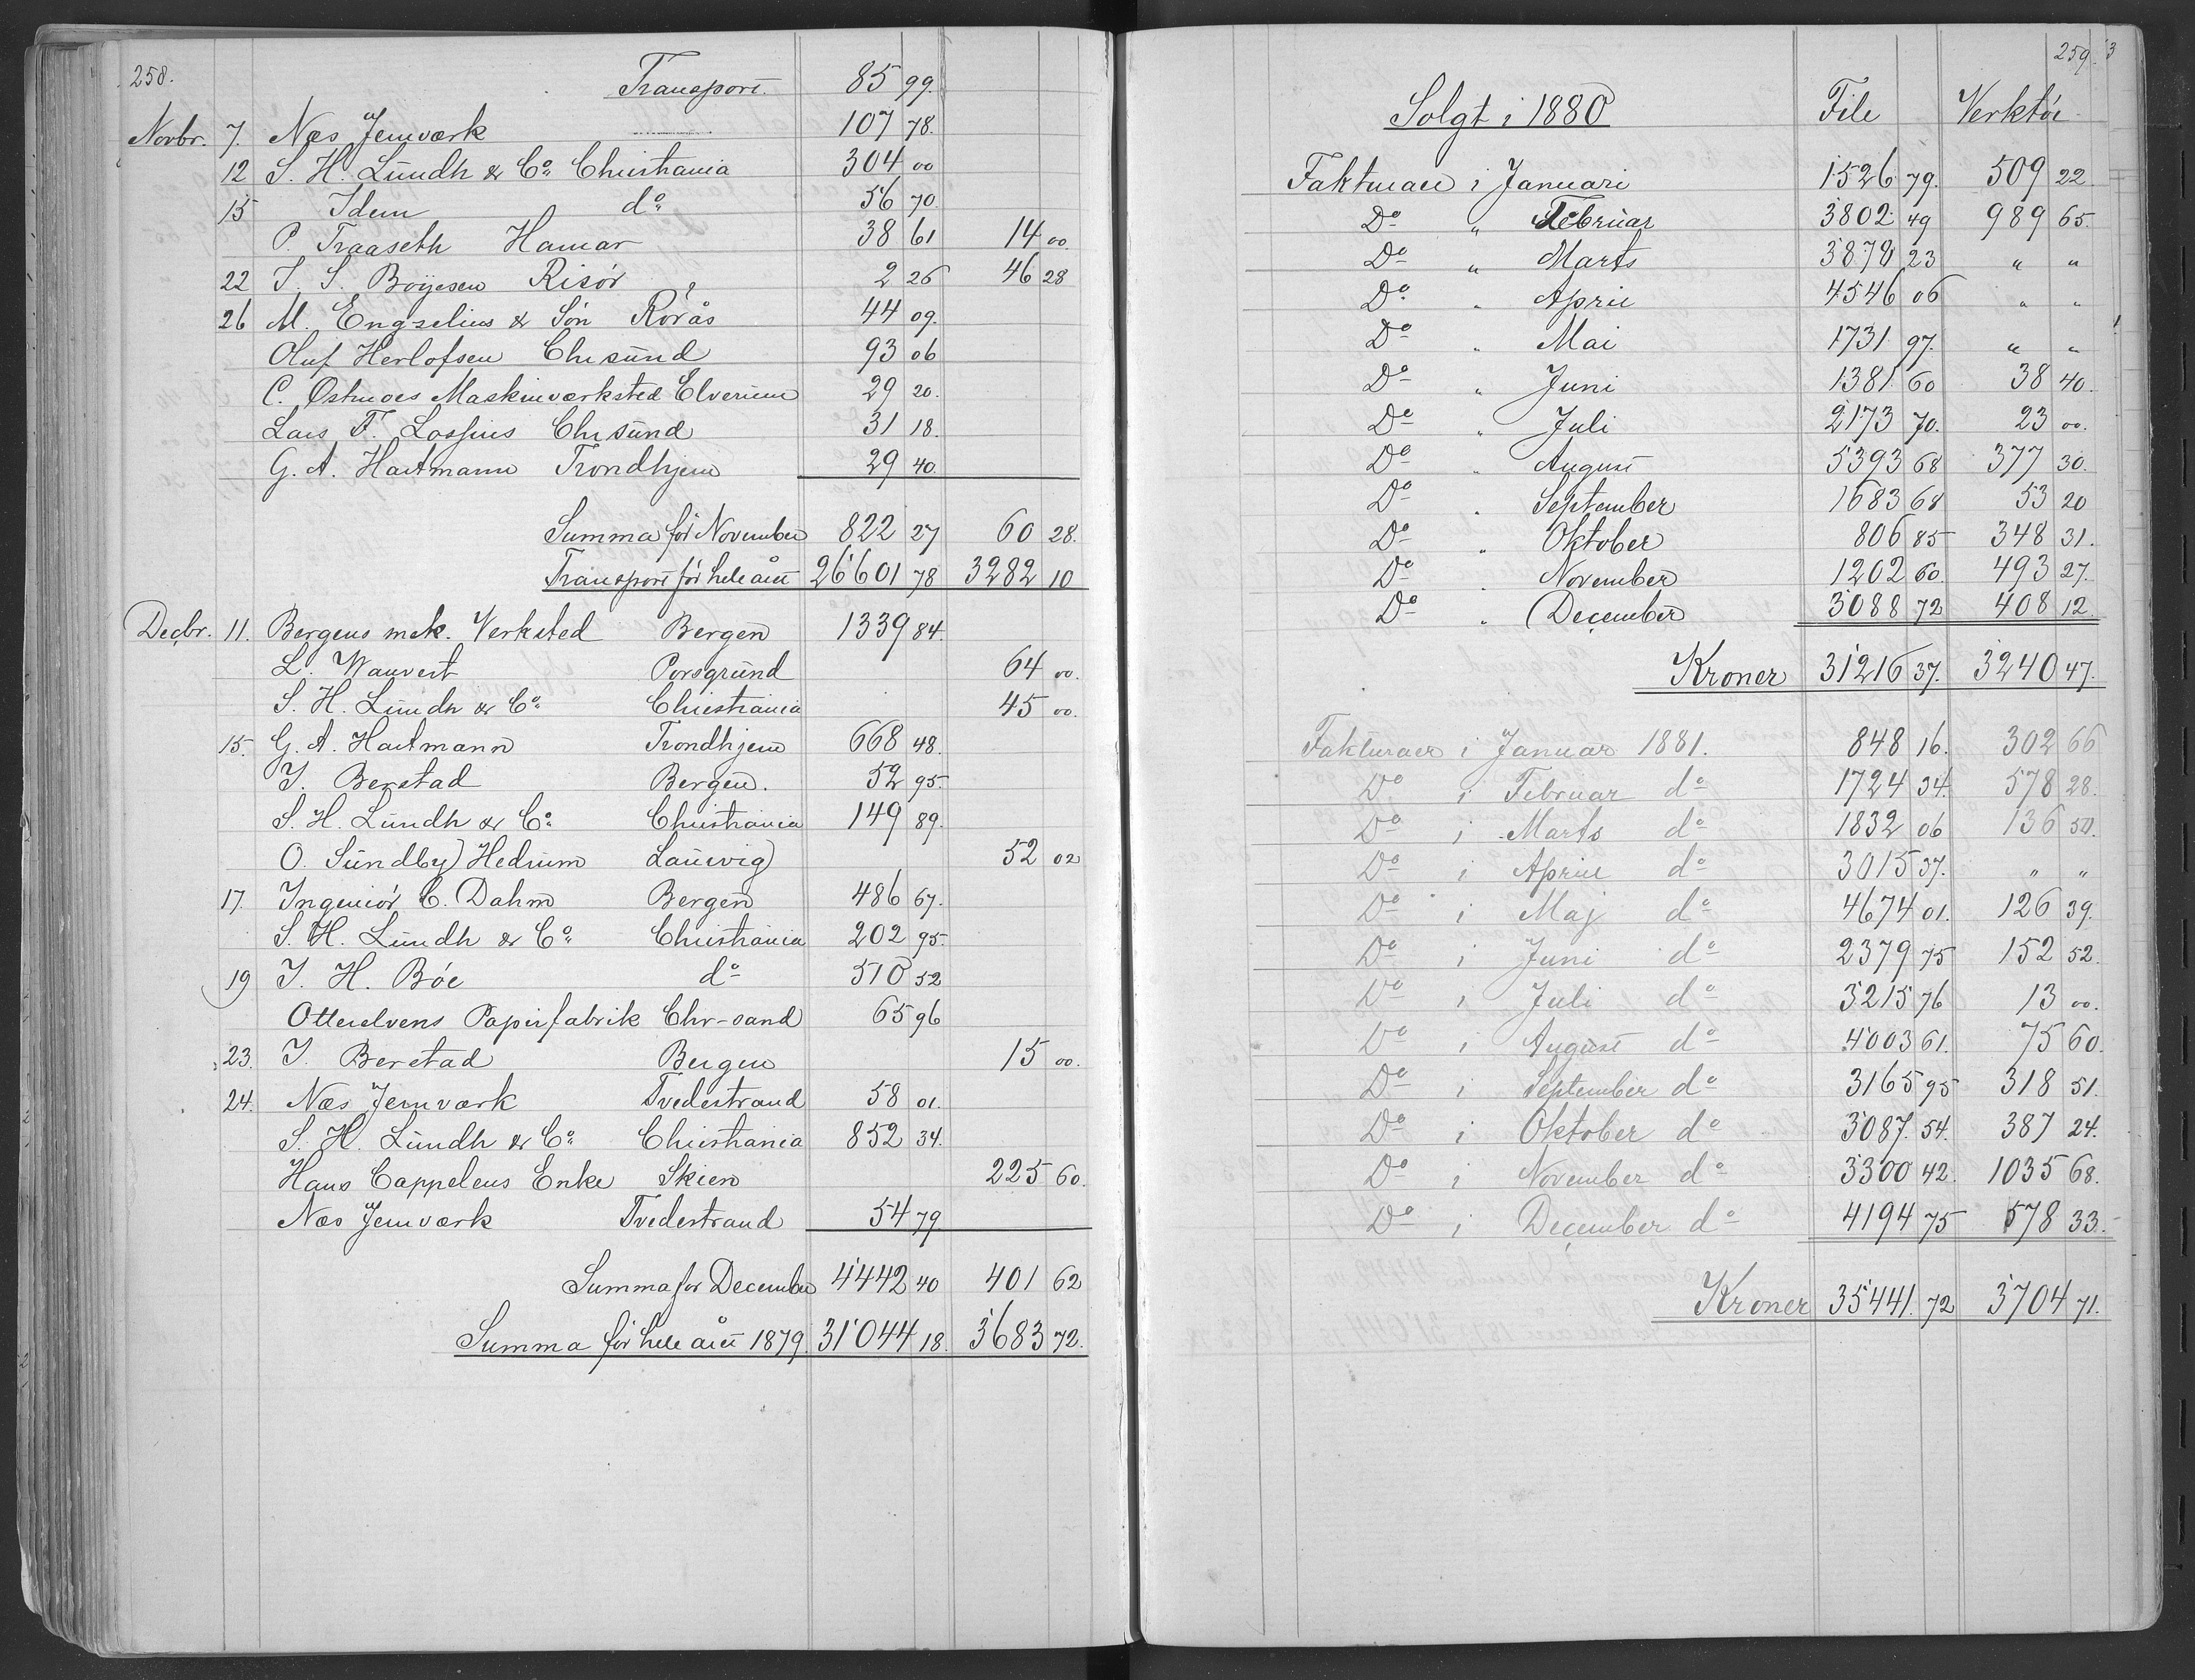 258.
Transport. 85 99.
Novbr. 7. Næs Jernværk 107 78.
12 S. H. Lundh & Co. Christiania 304 00
15 Idem do 56 70.
P. Traaseth Hamar 38 61 14 00.
22 J. S. Boijesen Risör 2 26 46 28
26 M. Engzelius & Sön Rörås 44 09.
Oluf Herlofsen Chrsund 93 06
C. Østmoes Maskinværksted Elverum 29 20.
Lars T. Lossius Chrsund 31 18.
G. A. Hartmann Trondhjem 29 40.
Summa för November 822 27 60 28.
Transport för hele året 26'601 78 3282 10
Decbr. 11. Bergens mek. Verksted Bergen 1339 84.
L. Wauvert Porsgrund 64 00.
S. H. Lundh & Co. Christiania 45 00.
15. G. A. Hartmann Trondhjem 668 48.
J. Berstad Bergen. 52 95.
S. H. Lundh & Co. Christiania 149 89.
O. Sundby Hedrum Laurvig 52 02
17. Ingeniör C. Dahm Bergen 486 67.
S. H. Lundh & Co. Christiania 202 95.
19 J. H. Böe do 510 52
Otterelvens Papirfabrik Chr-sand 65 96
23. J. Berstad Bergen 15 00.
24. Næs Jernværk Tvedestrand 58 01.
S. H. Lundh & Co. Christiania 852 34.
Hans Cappelens Enke Skien 225 60.
Næs Jernværk Tvedestrand 54 79
Summa for December 4'442 40 401 62
Summa för hele året 1879. 31'044 18. 3'683 72.
259.
Solgt i 1880 File Verktöi
Fakturaer i Januari 1526 79. 509 22.
Do " Februar 3802 49 989 65.
Do " Marts 3878 23 " "
Do " April 4546 06 " "
Do " Mai 1731 97. " "
Do " Juni 1381 60 38 40.
Do " Juli 2173 70. 23 00.
Do " August 5393 68 377 30.
Do " September 1683 68 53 20
Do " Oktober 806 85 348 31.
Do " November 1202 60. 493 27.
Do " December 3088 72 408 12.
Kroner 31'216 37. 3'240 47.
Fakturaer i Januar 1881. 848 16. 302 66
Do i Februar do 1724 34. 578 28.
Do i Marts do 1832 06 136 50.
Do i April do 3015 37. " "
Do i Maj do 4674 01. 126 39.
Do i Juni do 2379 75 152 52.
Do i Juli do 3215 76 13 00.
Do i August do 4003 61. 75 60.
Do i September do 3165 95 318 51.
Do i Oktober do 3087. 54. 387 24.
Do i November do 3300 42. 1035 68.
Do i December do 4194 75 578 33.
Kroner 35'441. 72 3'704 71.